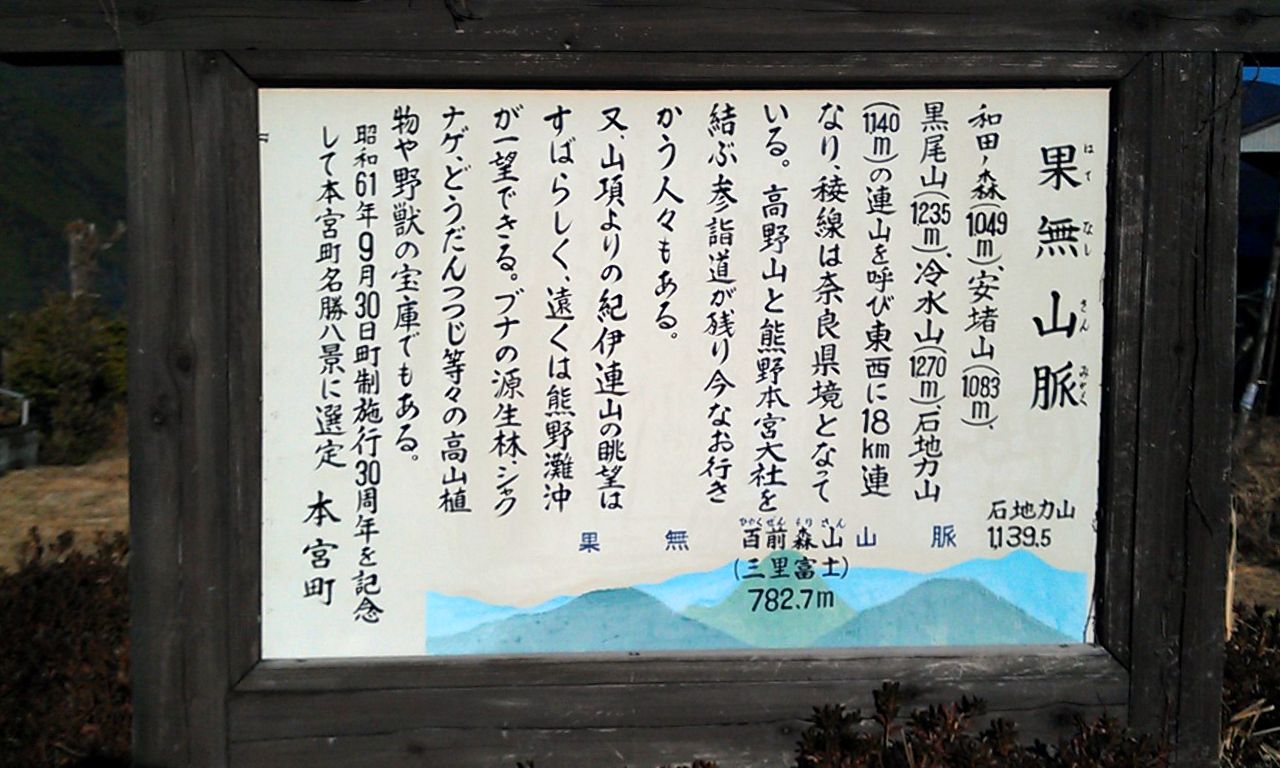 果無山脈
はて なし さん みゃく
和田ノ森(1049m)、安堵山(1083m)、
黒尾山(1235m)、冷水山(1270m)、石地力山
(1140m)の連山を呼び東西に18km連
なり、稜線は奈良県境となって
いる。高野山と熊野本宮大社を
結ぶ参詣道が残り今なお行き
かう人々もある。
又、山頂よりの紀伊連山の眺望は
すばらしく、遠くは熊野灘沖
が一望できる。ブナの源生林、シャク
ナゲ、どうだんつつじ等々の高山植
物や野獣の宝庫でもある。
昭和61年9月30日町制施行30周年を記念
して本宮町名勝八景に選定 本宮町
石地力山
1,139.5
果無山脈
ひやくぜんもりさん
百前森山
(三里富士)
782.7m